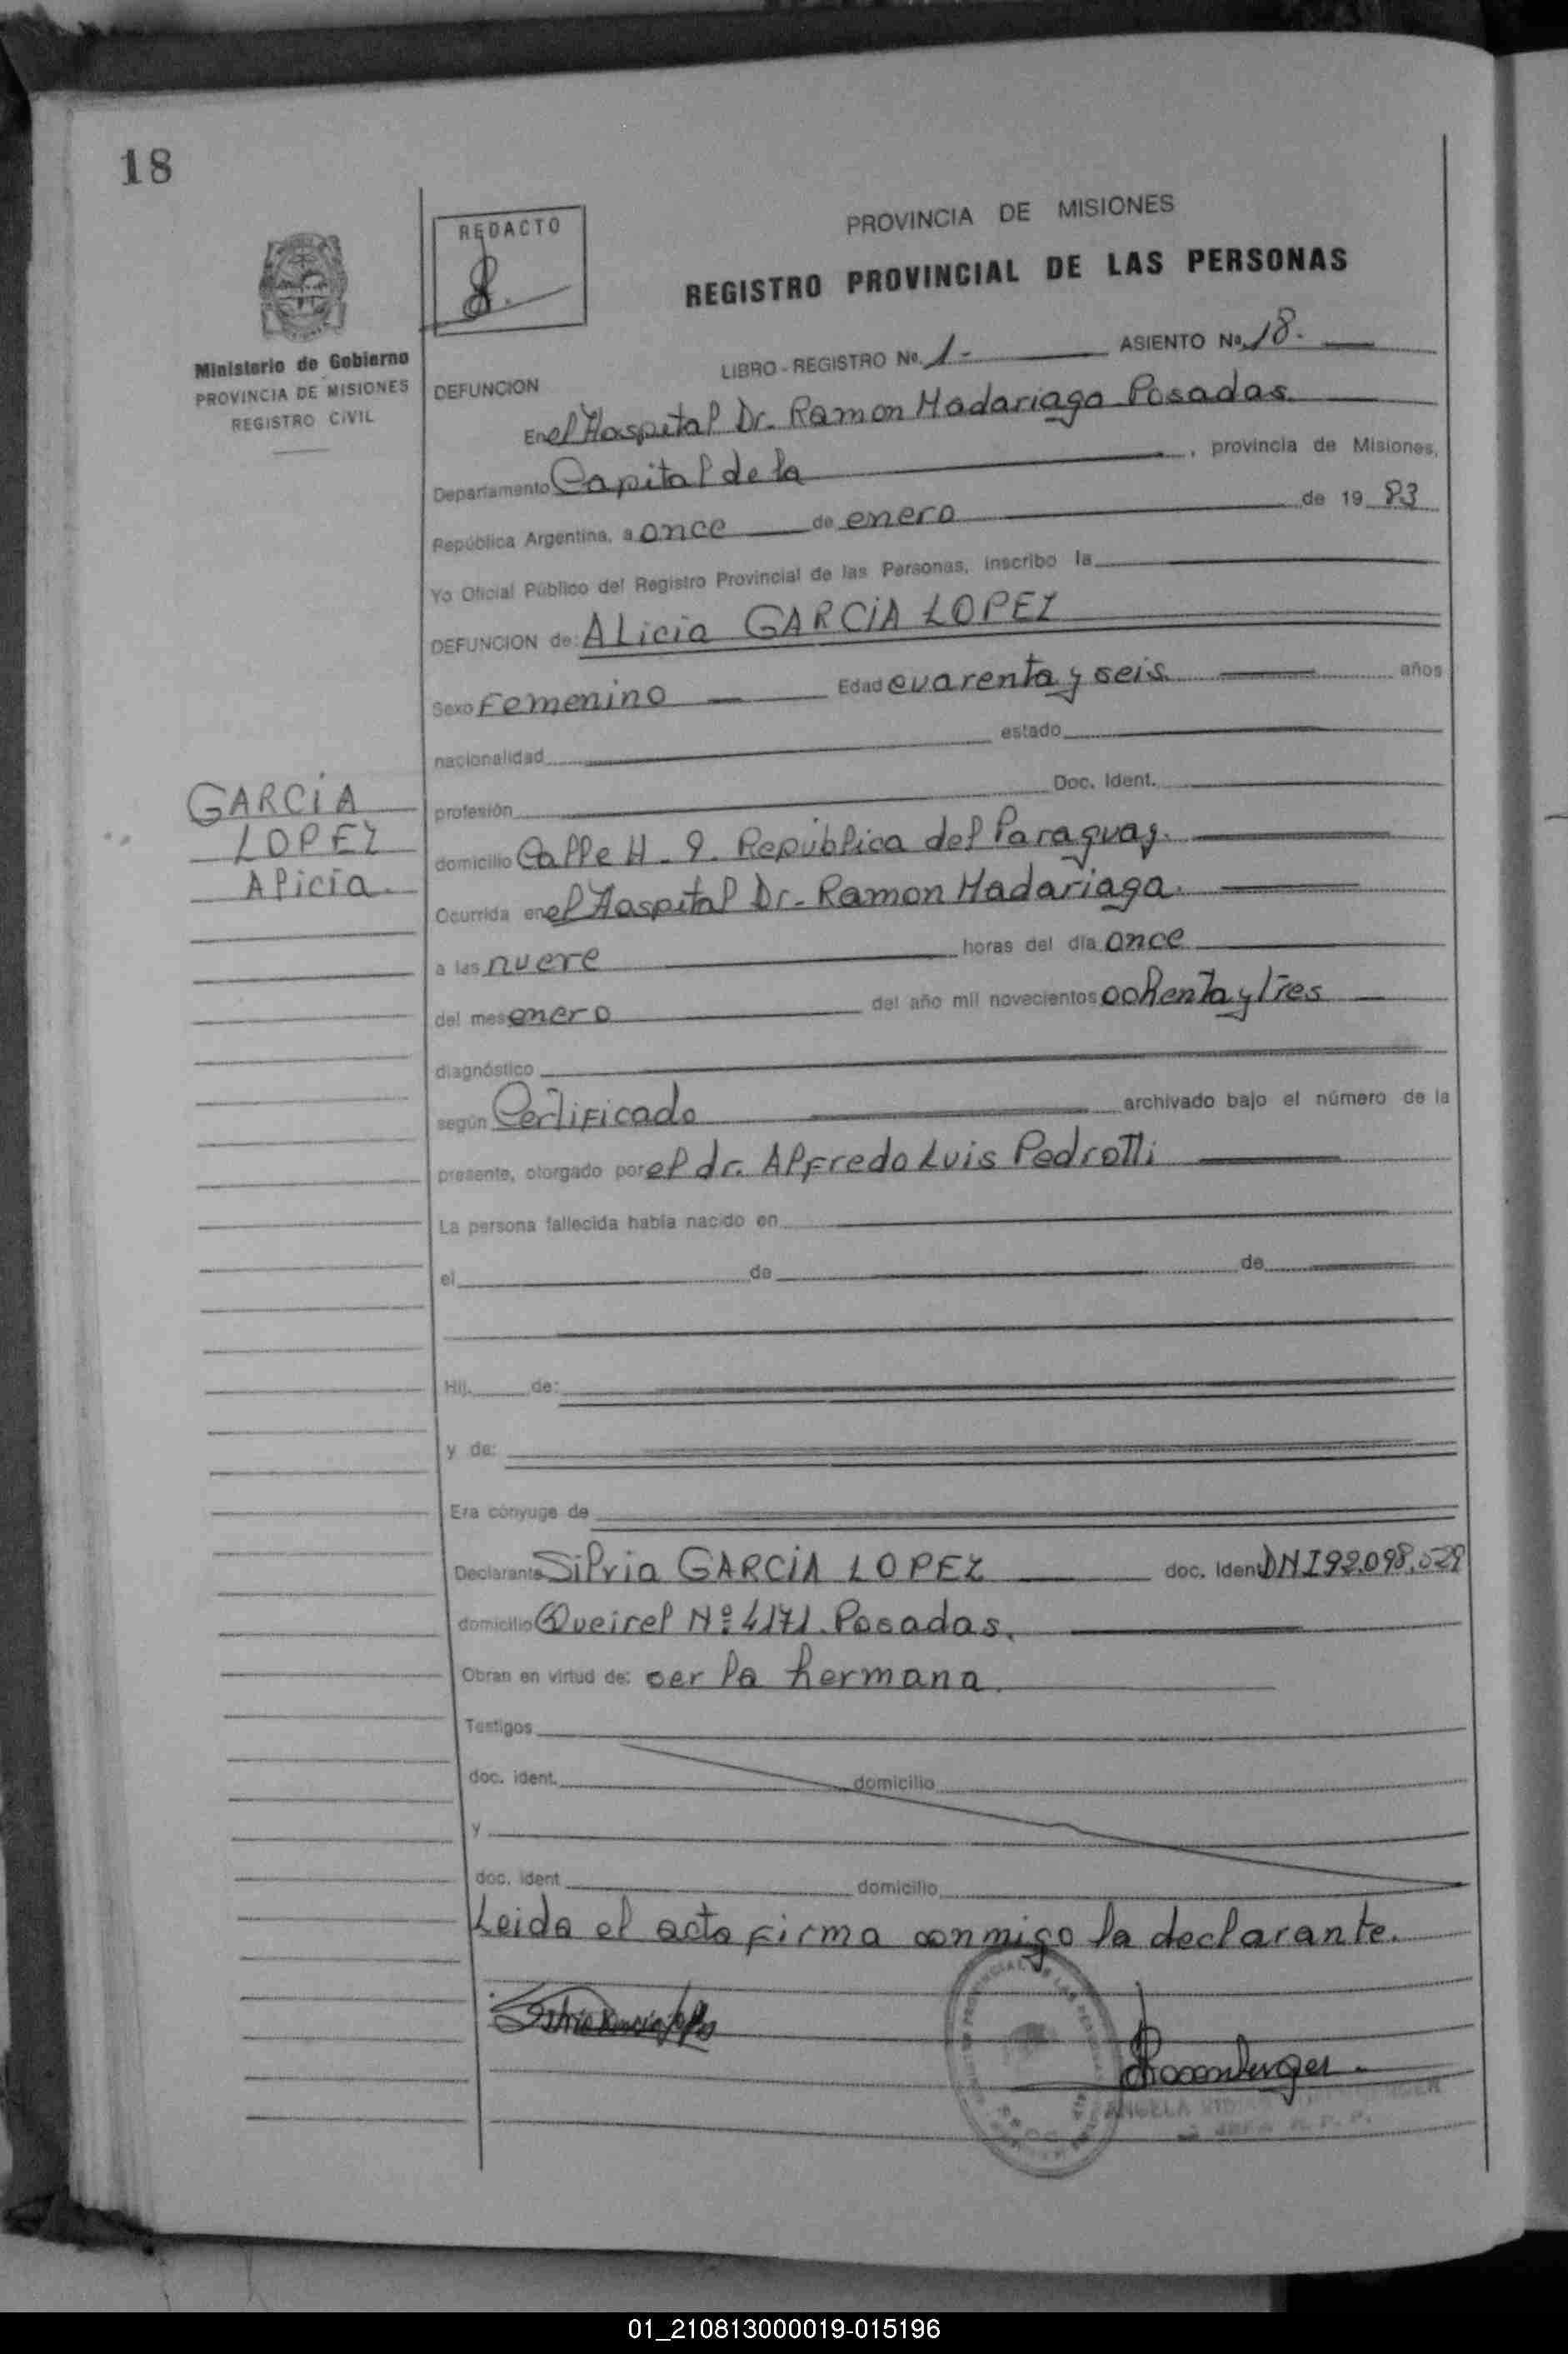 18
REDACTO
PROVINCIA DE MISIONES
REGISTRO PROVINCIAL DE LAS PERSONAS
Ministerio de Gobierno
PROVINCIA DE MISIONES
REGISTRO CIVIL
LIBRO - REGISTRO Nº. 1- ASIENTO Nº 18.
DEFUNCION
En el Hospital Dr. Ramon Madariaga Posadas
Departamento Capital de la , provincia de Misiones,
República Argentina, a once de enero de 19 83
Yo Oficial Público del Registro Provincial de las Personas, inscribo la
DEFUNCION de: ALicia GARCIA LOPEZ
Sexo Femenino Edad cuarenta y seis años
nacionalidad estado
profesión Doc. Ident.
GARCIA
LOPEZ
Alicia.
domicilio Calle H. 9. República del Paraguay.
Ocurrida en el Hospital Dr. Ramon Madariaga.
a las nueve horas del día once
del mes enero del año mil novecientos ochenta y tres
diagnóstico
según Certificado archivado bajo el número de la
presente, otorgado por el dr. Alfredo Luis Pedrotti
La persona fallecida había nacido en
el de de
Hij. de:
y de:
Era cónyuge de
Declarante Silvia GARCIA LOPEZ doc. Ident DNI 92.098.529
domicilio Queirel Nº 4171. Posadas.
Obran en virtud de: ser la hermana.
Testigos
doc. ident. domicilio
y
doc. ident domicilio
Leida el acta firma conmigo la declarante.
ANGELA
JEFA R. P. P.
01_210813000019-015196